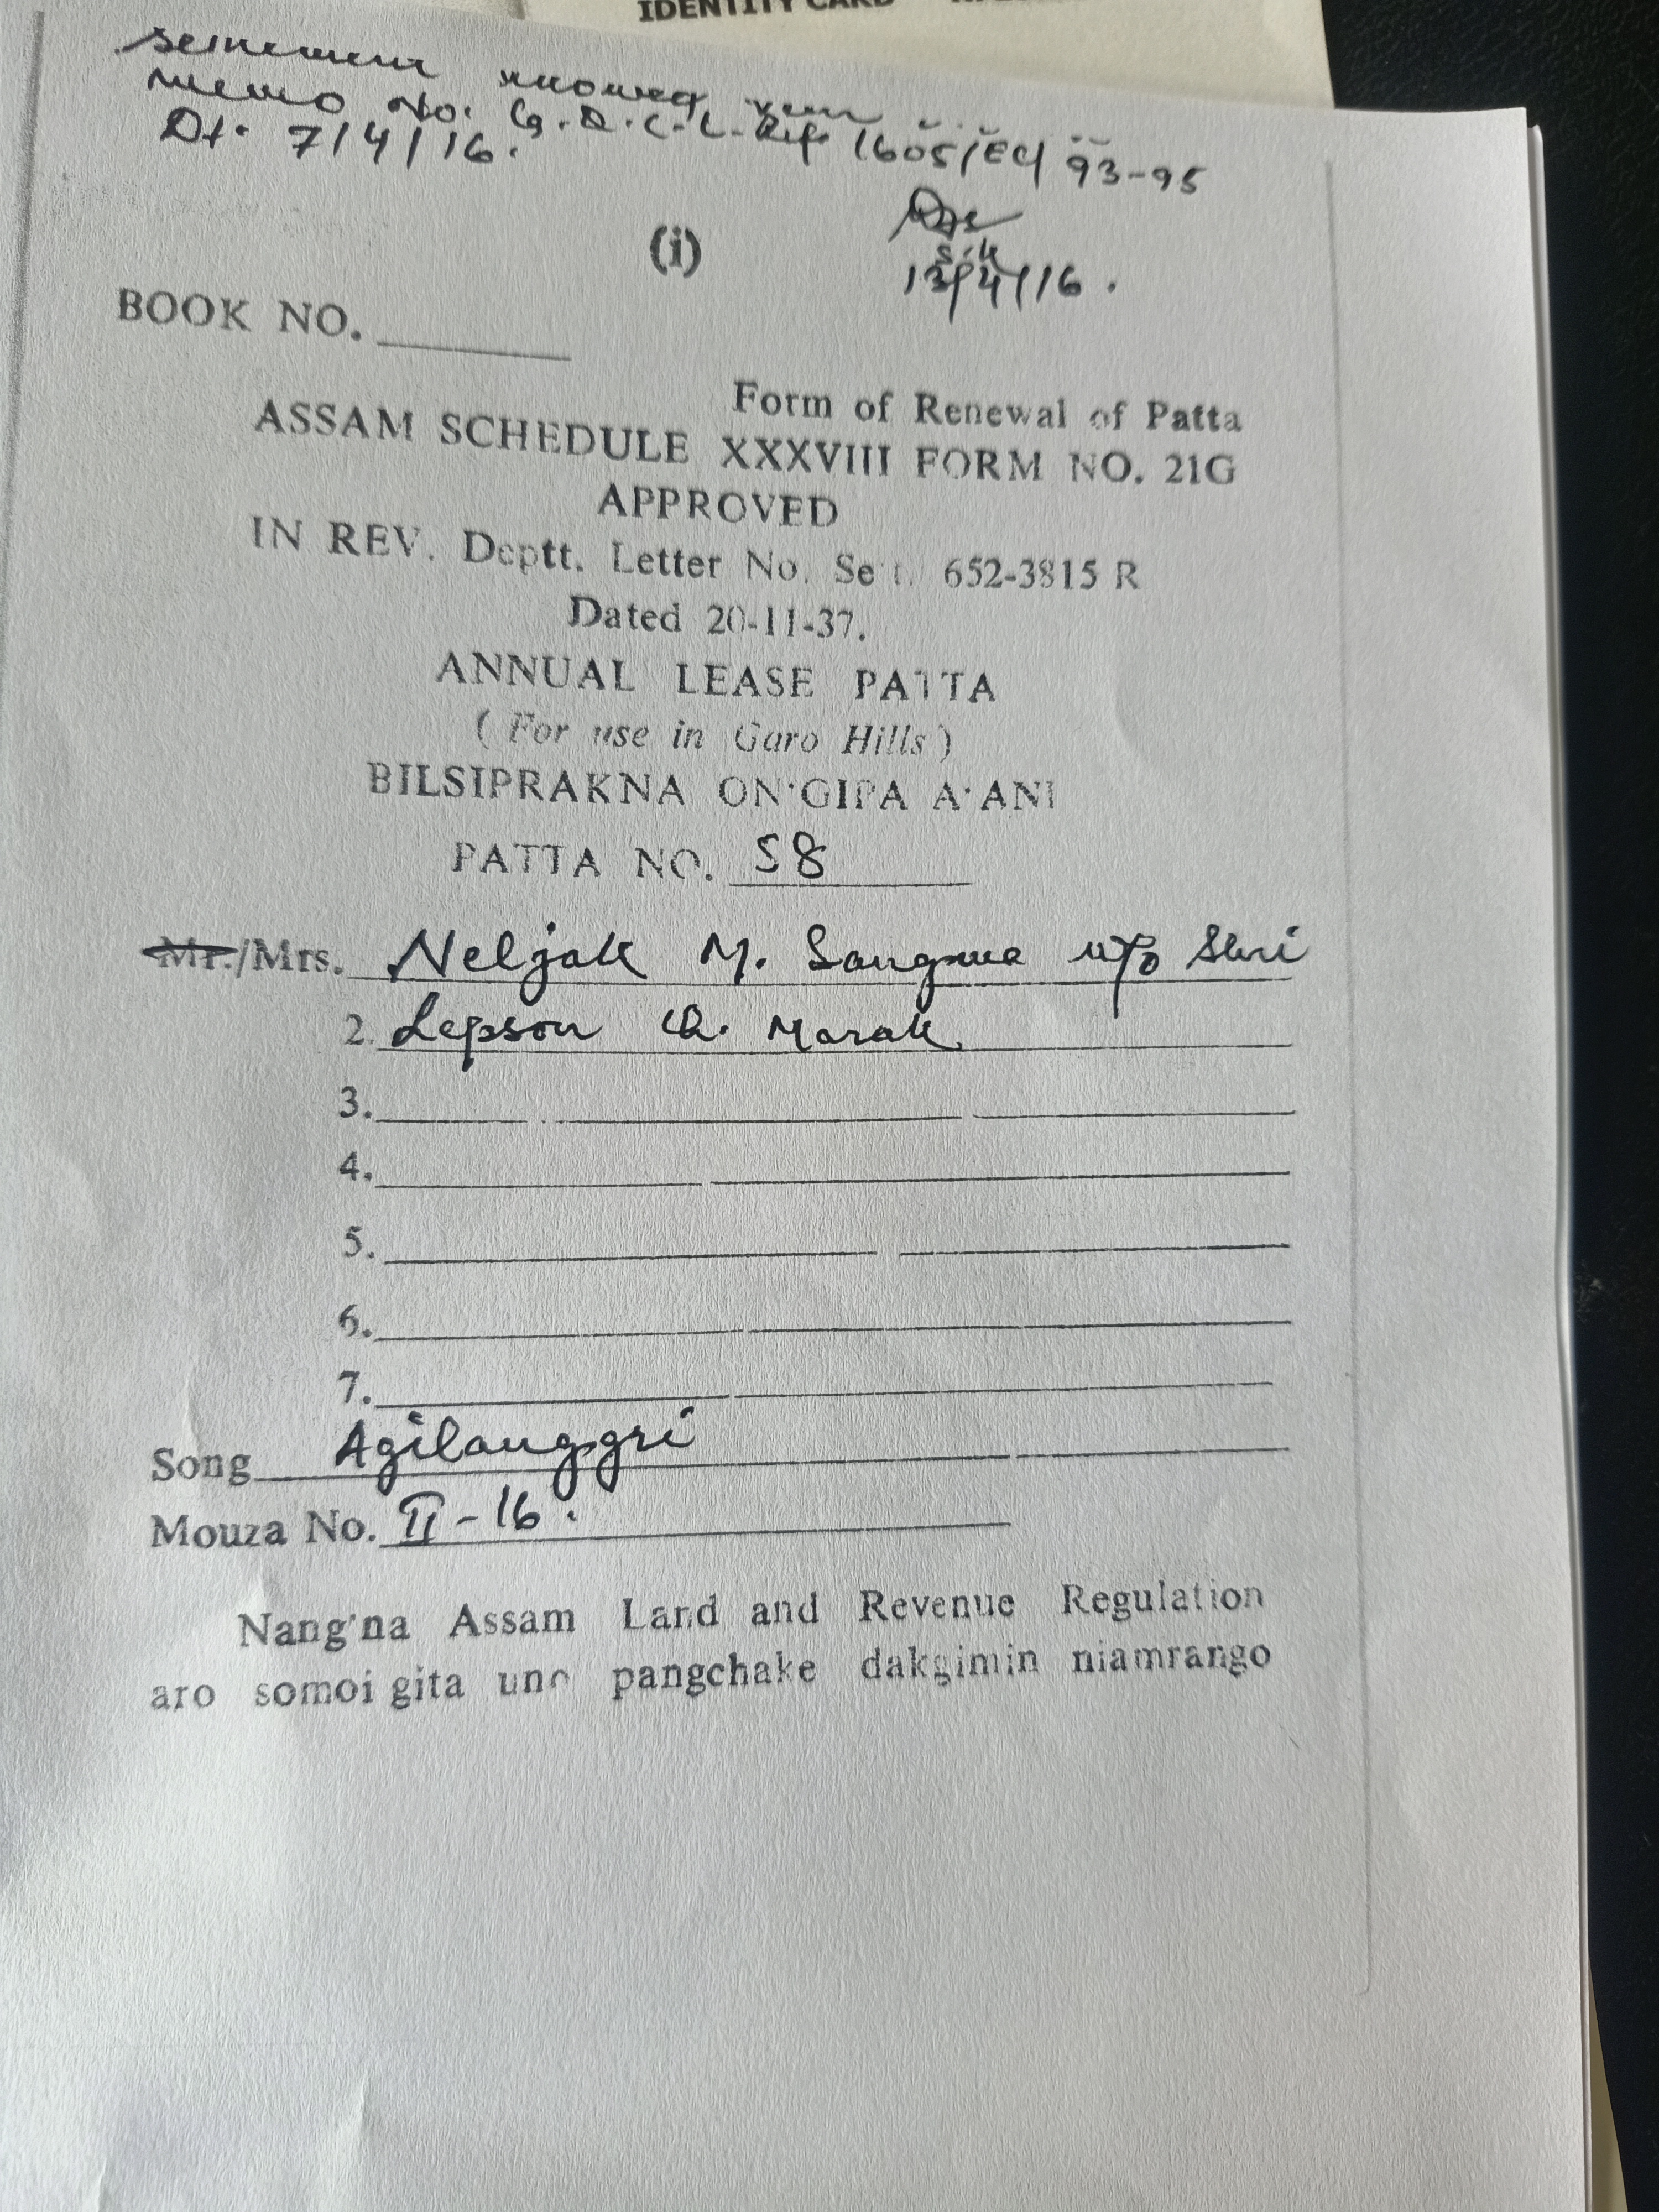 IDENTITY CARD
memo No. G.D.C.L. Rip 1605/EC/ 93-95
Dt. 7/4/16.
13/4/16.
(i)
BOOK NO.
Form of Renewal of Patta
ASSAM SCHEDULE XXXVIII FORM NO. 21G
APPROVED
IN REV. Deptt. Letter No. Set. 652-3815 R
Dated 20-11-37.
ANNUAL LEASE PATTA
( For use in Garo Hills )
BILSIPRAKNA ON'GIPA A'ANI
PATTA NO. 58
Mr./Mrs. Neljak M. Sangma w/o Shri
2. Lepson Ch. Marak
3.
4.
5.
6.
7.
Song Agilanggri
Mouza No. II-16.
Nang'na Assam Land and Revenue Regulation
aro somoi gita uno pangchake dakgimin niamrango